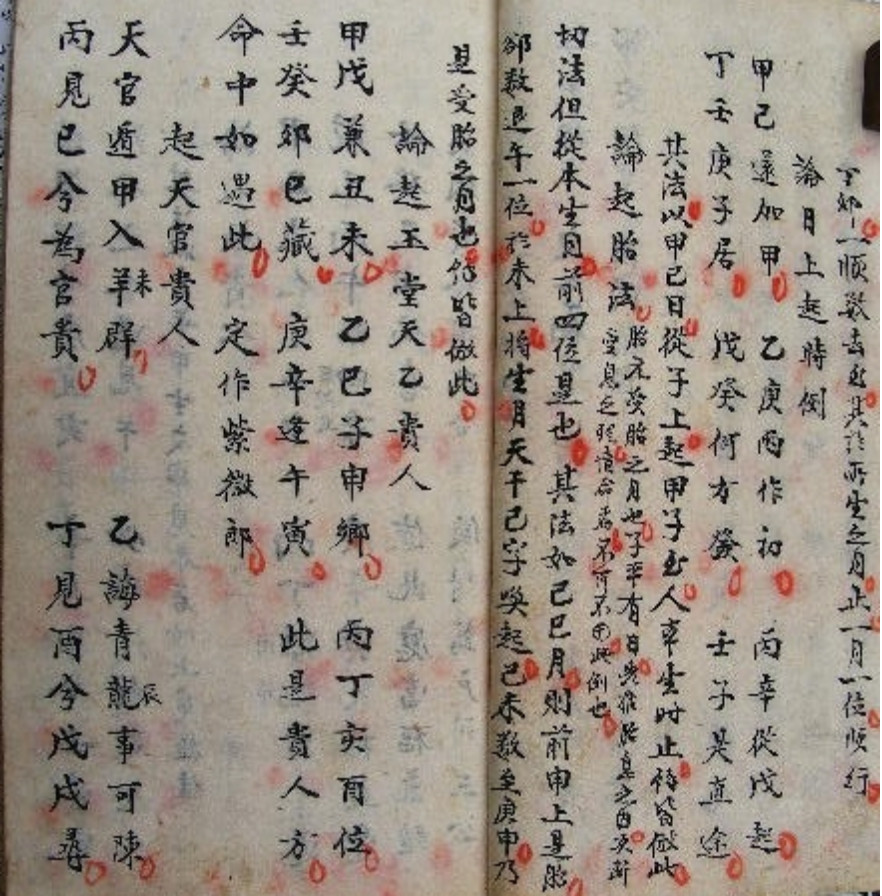 丁卯一順數去至其於所生之月止一月一位順行
論日上起時例
甲己還加甲 乙庚丙作初 丙辛從戊起
丁壬庚子居 戊癸何方發 壬子是直途
其法以甲己日從子上起甲子至人本生時止餘皆倣此
論起胎法
胎元受胎之月也子平有日先推胎息之由次新
受息之理談命者不可不由此例也
切法但從本生月前四位是也 其法如己巳月則前申上是胎
卻數退午一位於未上將生月天干己字喚起己未數至庚申乃
是受胎之月也餘皆倣此
論起玉堂天乙貴人
甲戊兼丑未 乙己子申鄉 丙丁亥酉位
壬癸卯巳藏 庚辛逢午寅 此是貴人方
命中如遇此 定作紫微郎
起天官貴人
天官遁甲入羊未群 乙誨青龍辰事可陳
丙見巳兮為官貴 丁見酉兮戊戌尋